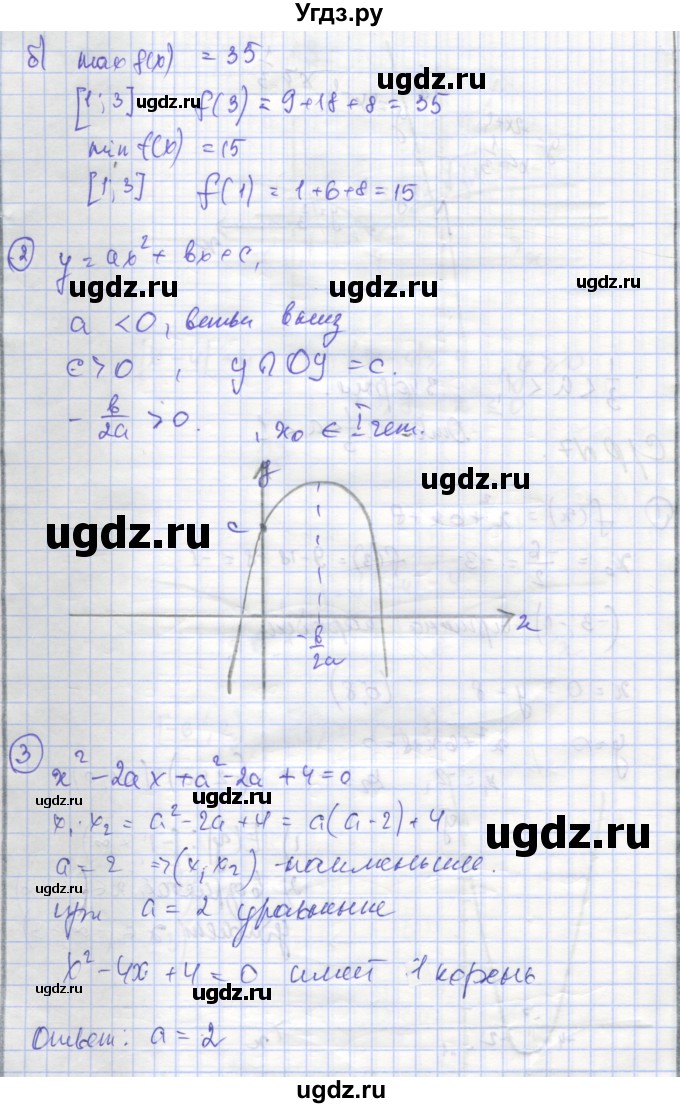 Угдз.ру
б) max f(x) = 35
ugdz.ru
[1; 3] ugdz.ru f(3) = 9+18+8 = 35
min f(x) = 15
[1; 3] f(1) = 1+6+8 = 15
ugdz.ru
② y = ax² + bx + c,
ugdz.ru ugdz.ru ugdz.ru
a < 0, ветви вниз
c > 0 , y ∩ Oy = c.
- b/2a > 0. , x₀ ∈ I чет.
ugdz.ru
y
ugdz.ru
c
ugdz.ru
ugdz.ru
x
- b/2a
ugdz.ru
③ x² - 2ax + a² - 2a + 4 = 0
ugdz.ru ugdz.ru
x₁ · x₂ = a² - 2a + 4 = a(a-2) + 4
ugdz.ru
a = 2 => (x₁x₂) - наименьшее.
ugdz.ru
при a = 2 уравнение
x² - 4x + 4 = 0 имеет 1 корень
ugdz.ru ugdz.ru
Ответ: a = 2
ugdz.ru